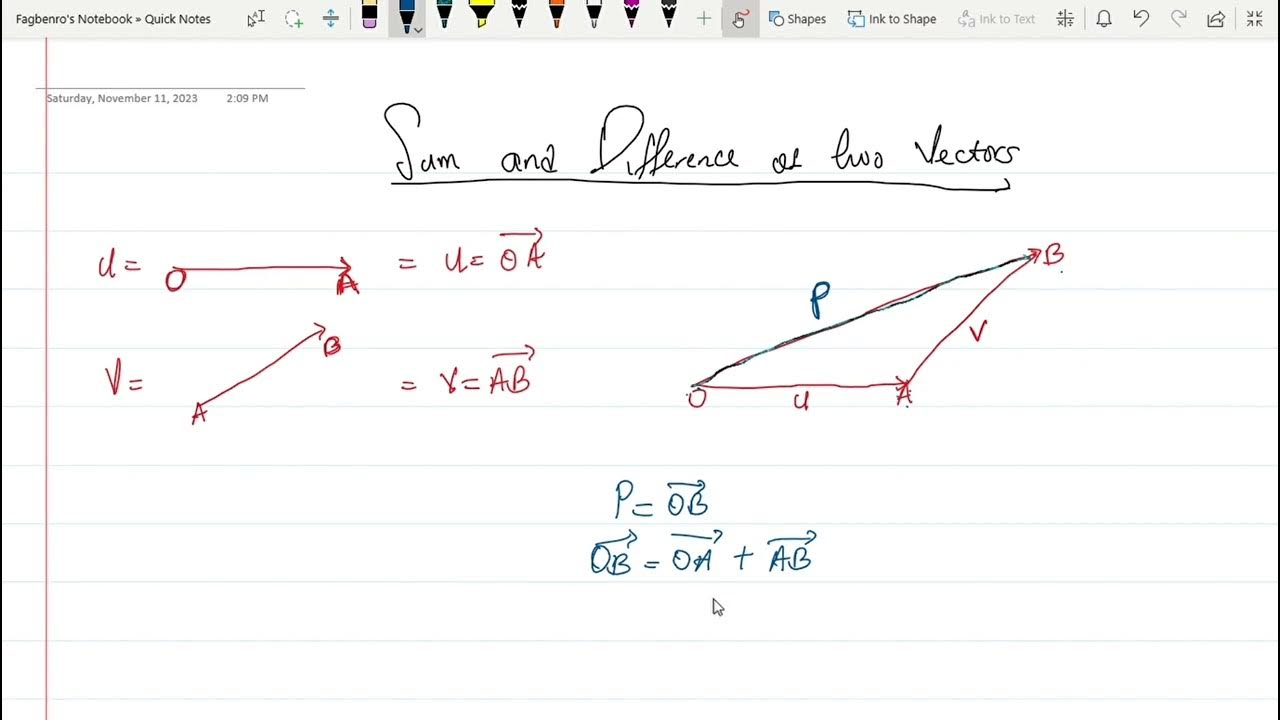 Fagbenro's Notebook » Quick Notes
Shapes
Ink to Shape
Ink to Text
Saturday, November 11, 2023 2:09 PM
Sum and Difference of two Vectors
u = O A = u = OA
V = A B = V = AB
P
B
V
O u A
P = OB
OB = OA + AB